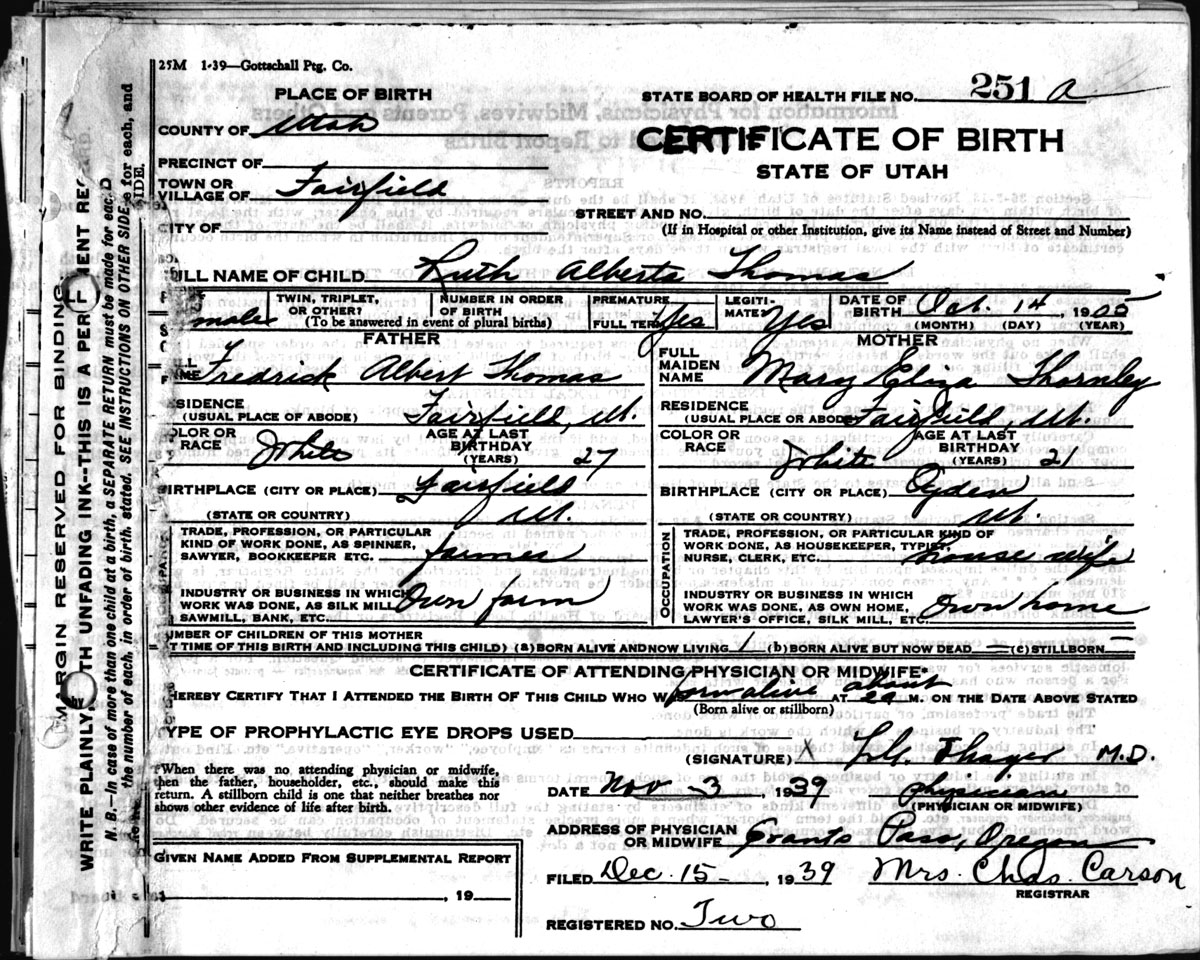 25M 1-39—Gottschall Ptg. Co.
PLACE OF BIRTH
STATE BOARD OF HEALTH FILE NO. 251 a
COUNTY OF Utah
CERTIFICATE OF BIRTH
PRECINCT OF
STATE OF UTAH
TOWN OR VILLAGE OF Fairfield
STREET AND NO.
CITY OF
(If in Hospital or other Institution, give its Name instead of Street and Number)
ULL NAME OF CHILD Ruth Alberta Thomas
male
TWIN, TRIPLET, OR OTHER?
NUMBER IN ORDER OF BIRTH
(To be answered in event of plural births)
PREMATURE
FULL TERM Yes
LEGITIMATE? Yes
DATE OF BIRTH Oct. 14, 1905
(MONTH) (DAY) (YEAR)
FATHER
MOTHER
Fredrick Albert Thomas
FULL MAIDEN NAME Mary Eliza Thornley
ESIDENCE (USUAL PLACE OF ABODE) Fairfield, Ut.
RESIDENCE (USUAL PLACE OR ABODE) Fairfield, Ut.
OLOR OR RACE White AGE AT LAST BIRTHDAY (YEARS) 27
COLOR OR RACE White AGE AT LAST BIRTHDAY (YEARS) 21
BIRTHPLACE (CITY OR PLACE) Fairfield
BIRTHPLACE (CITY OR PLACE) Ogden
(STATE OR COUNTRY) Ut.
(STATE OR COUNTRY) Ut.
TRADE, PROFESSION, OR PARTICULAR KIND OF WORK DONE, AS SPINNER, SAWYER, BOOKKEEPER ETC. farmer
OCCUPATION
TRADE, PROFESSION, OR PARTICULAR KIND OF WORK DONE, AS HOUSEKEEPER, TYPIST, NURSE, CLERK, ETC. house wife
INDUSTRY OR BUSINESS IN WHICH WORK WAS DONE, AS SILK MILL, SAWMILL, BANK, ETC. Own farm
INDUSTRY OR BUSINESS IN WHICH WORK WAS DONE, AS OWN HOME, LAWYER'S OFFICE, SILK MILL, ETC. Own home
UMBER OF CHILDREN OF THIS MOTHER
T TIME OF THIS BIRTH AND INCLUDING THIS CHILD) (a) BORN ALIVE AND NOW LIVING 1 (b) BORN ALIVE BUT NOW DEAD — (c) STILLBORN —
CERTIFICATE OF ATTENDING PHYSICIAN OR MIDWIFE*
HEREBY CERTIFY THAT I ATTENDED THE BIRTH OF THIS CHILD WHO W born alive AT about M. ON THE DATE ABOVE STATED
(Born alive or stillborn)
TYPE OF PROPHYLACTIC EYE DROPS USED
(SIGNATURE) X Thayer M.D.
*When there was no attending physician or midwife,
then the father, householder, etc., should make this
return. A stillborn child is one that neither breathes nor
shows other evidence of life after birth.
DATE Nov - 3, 1939 physician
(PHYSICIAN OR MIDWIFE)
ADDRESS OF PHYSICIAN OR MIDWIFE Grants Pass, Oregon
GIVEN NAME ADDED FROM SUPPLEMENTAL REPORT
, 19
FILED Dec. 15-, 1939 Mrs. Chas. Carson
REGISTRAR
REGISTERED NO. Two
MARGIN RESERVED FOR BINDING
WRITE PLAINLY WITH UNFADING INK--THIS IS A PERMENT REC
N. B.—In case of more than one child at a birth, a SEPARATE RETURN must be made for each, and
the number of each, in order of birth, stated. SEE INSTRUCTIONS ON OTHER SIDE.